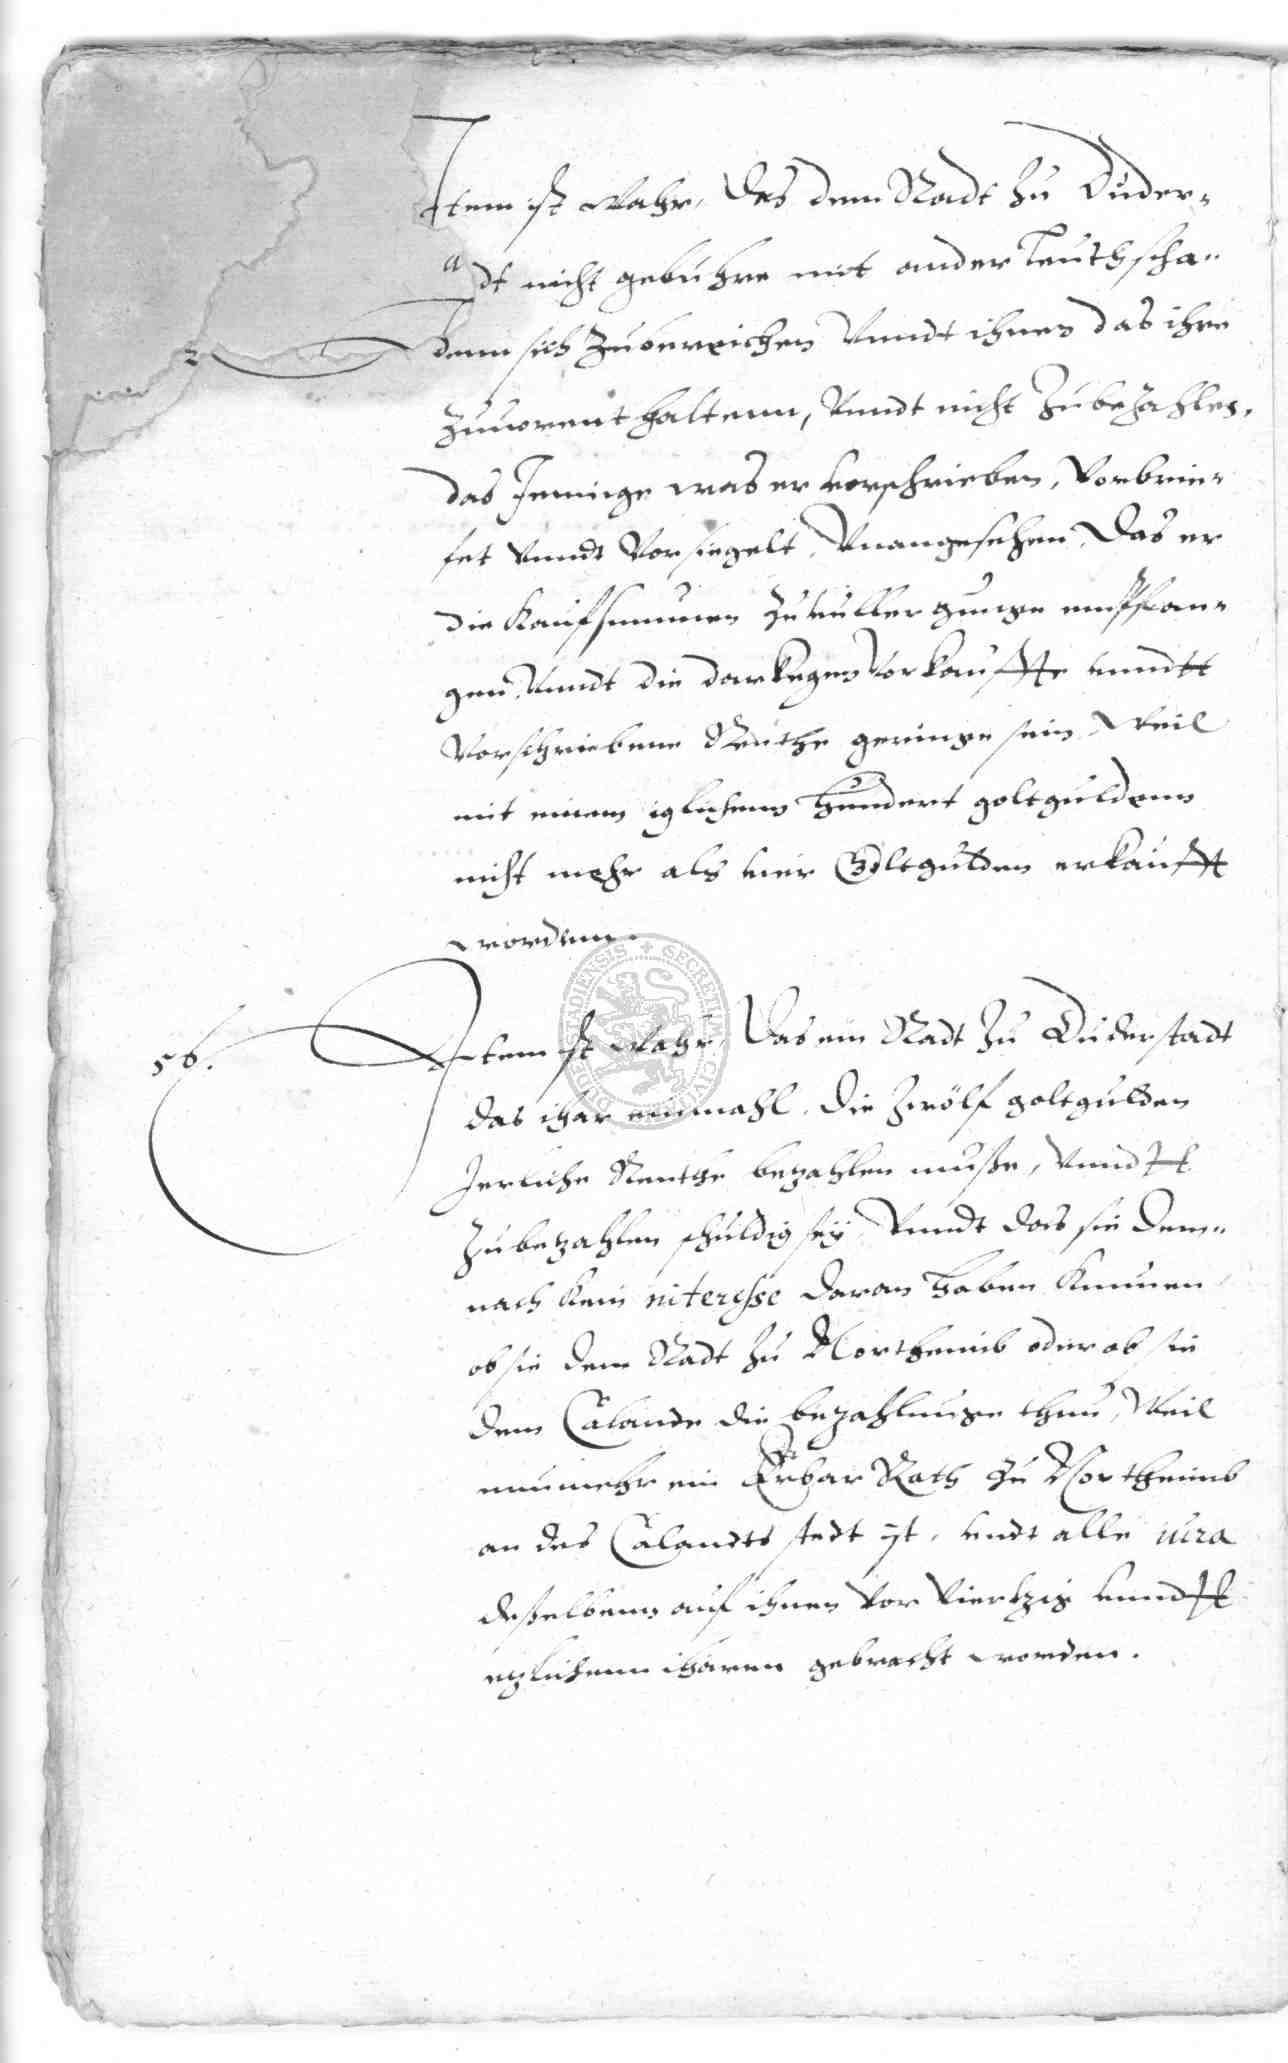 Item ist wahr, das dem Radt zu Duder-
adt nicht gebuhre mit ander leuth scha-
denn sich zubereichen Vnndt ihnen das ihre
zuuorenthaltenn, Vnndt nicht zubezahlen,
das Jenninge was er vorschrieben, Vorbrie-
fet vnndt Vorsiegelt, Vnangesehen, das er
die Kaufsummen zu vuller gnuge empfan-
gen, Vnndt die darkegen Vorkauffte vnndt
Vorschriebene Renthe geringe sein, Weil
mit einem iglichenn hundert goltguldenn
nicht mehr als vier Goltgulden erkaufft
wordenn.
56. Item ist wahr, das ein Radt zu Duderstadt
das ihar einmahl, die zwölf goltgulden
Jerliche Renthe bezahlen muße, vnndt
zubezahlen schuldig sey, Vnndt das sie dem-
nach kein interesse daran haben Kunnen
ob sie dem Radt zu Northeimb oder ob sie
dem Calande die bezahlunge thun, Weil
nunmehr ein Erbar Rath zu Northeimb
an des Calandts stedt ist, vndt alle iura
deßelbenn auf ihnen vor Viertzig vnndt
etzlichenn iharen gebracht worden.
SECRETUM CIVIUM DUDERSTADIENSIS